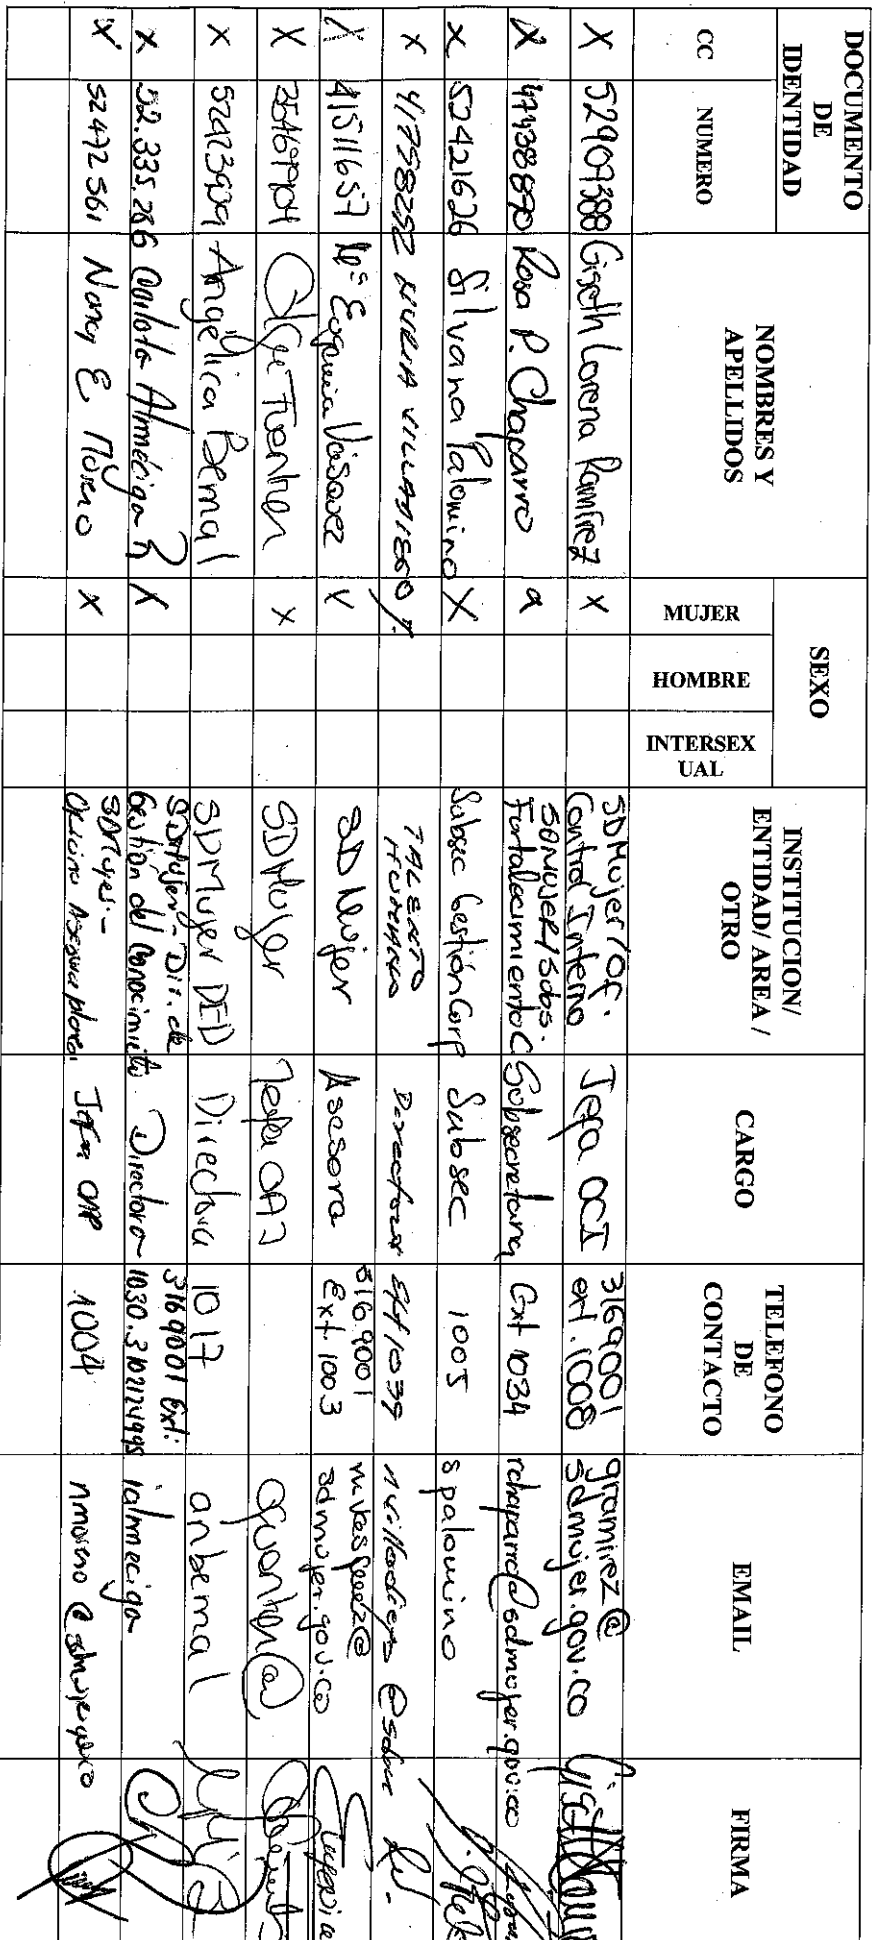 DOCUMENTO DE IDENTIDAD
CC
NUMERO
NOMBRES Y APELLIDOS
SEXO
MUJER
HOMBRE
INTERSEXUAL
INSTITUCION/ ENTIDAD/ AREA / OTRO
CARGO
TELEFONO DE CONTACTO
EMAIL
FIRMA
X 52907388 Giseth Lorena Ramírez X SDMujer/Of. Control Interno Jefa OCI 3169001 ext. 1008 gramirez@sdmujer.gov.co
X 47438890 Rosa P. Chaparro SDMUJER/Subs. Fortalecimiento C Subsecretaria Ext 1034 rchaparro@sdmujer.gov.co
X 52421626 Silvana Palomino X Subsec Gestión Corp Subsec 1005 spalomino
X 41798252 NURIA VILLADIEGO TALENTO HUMANO Directora Ext 1039
X 41511657 Mª Eugenia Vásquez SDMujer Asesora 3169001 Ext. 1003 sdmujer.gov.co
X X SDMujer Jefa OAJ
X Angélica Bernal SDMujer DED Directora 1017 anbernal
X 52.335.286 Alméciga R X SDMujer - Dir. de Gestión del Conocimiento Directora 3169001 Ext: 1030. ialmeciga
X 52472561 Nancy E Moreno X SDMujer - Oficina Asesora Jefa OAP 1004